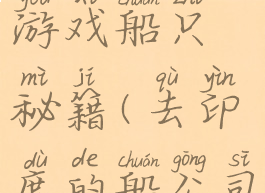 yóu xì chuán zhī
游戏船只
mì jí qù yìn
秘籍(去印
dù de chuán gōng sī
度的船公司